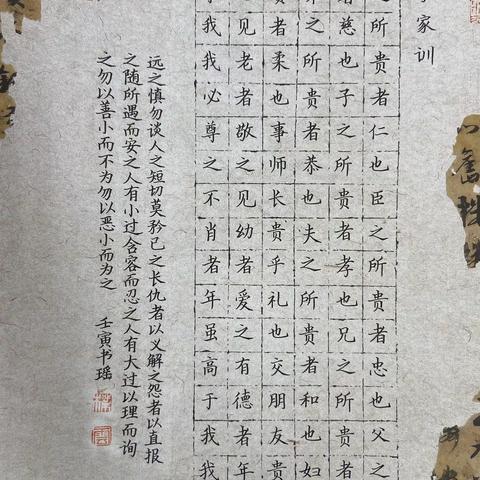 家训
所贵者仁也臣之所贵者忠也父之
慈也子之所贵者孝也兄之所贵者
之所贵者恭也夫之所贵者和也妇
贵者柔也事师长贵乎礼也交朋友贵
见老者敬之见幼者爱之有德者年
我我必尊之不肖者年虽高于我我
远之慎勿谈人之短切莫矜己之长仇者以义解之怨者以直报
之随所遇而安之人有小过含容而忍之人有大过以理而询
之勿以善小而不为勿以恶小而为之 壬寅书瑶